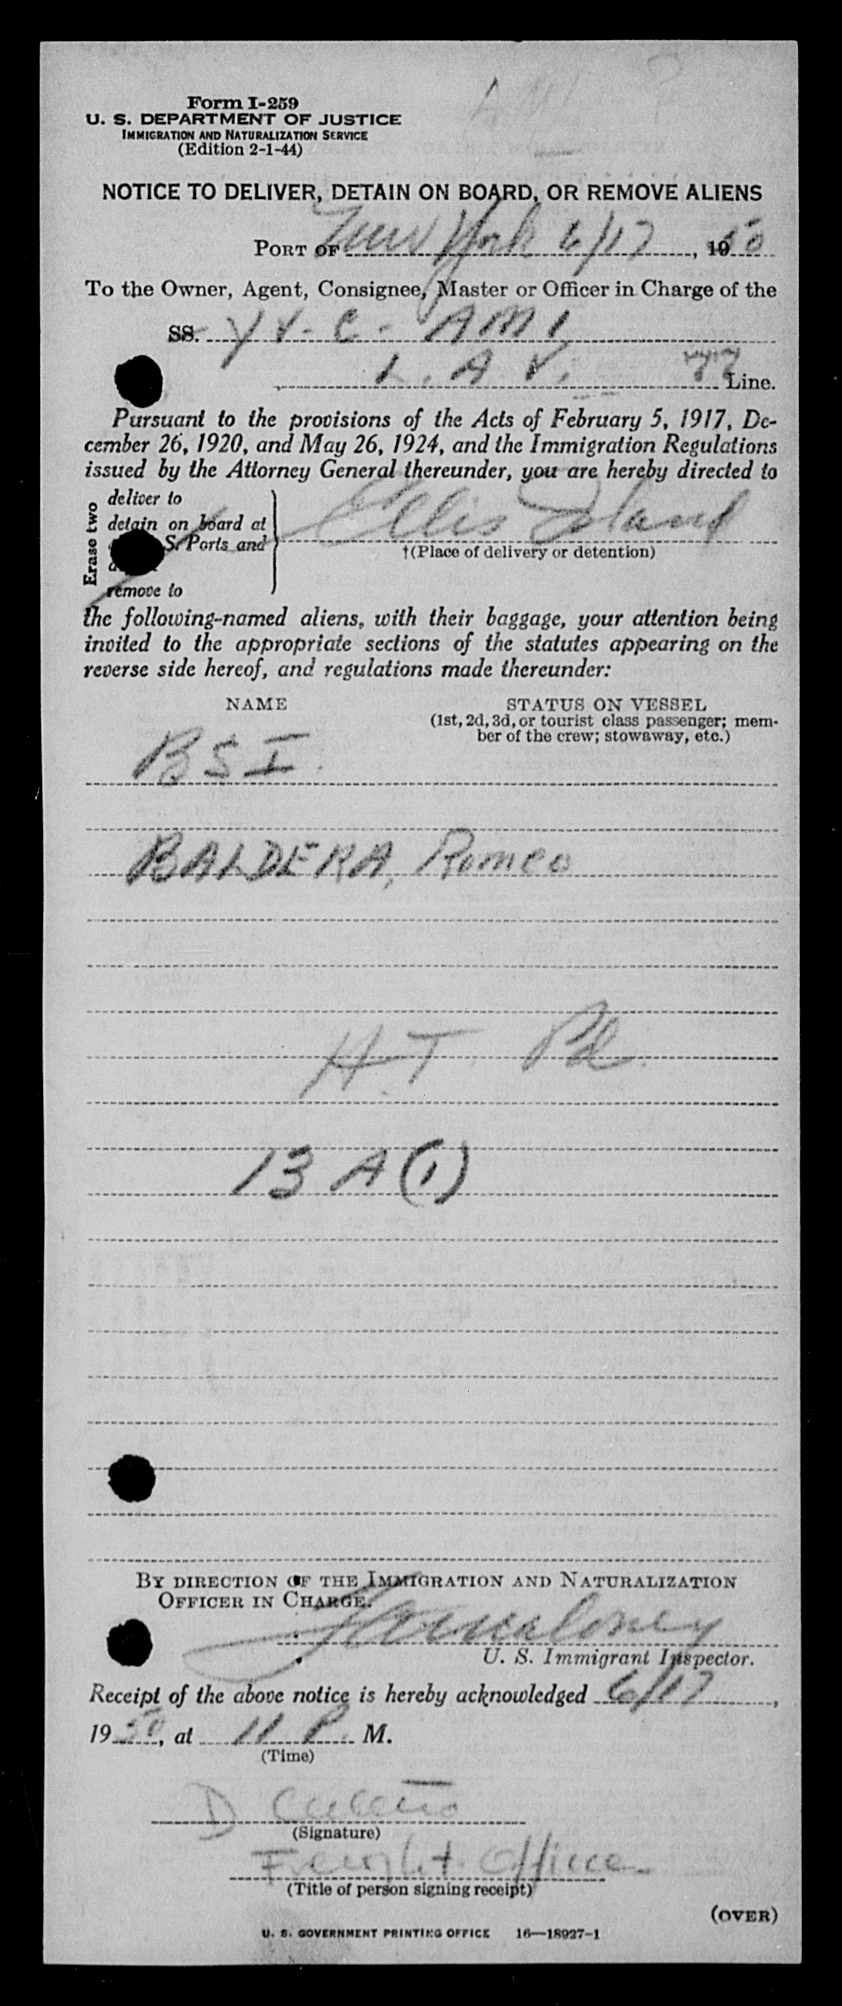 Form I-259
U. S. DEPARTMENT OF JUSTICE
IMMIGRATION AND NATURALIZATION SERVICE
(Edition 2-1-44)
NOTICE TO DELIVER, DETAIN ON BOARD, OR REMOVE ALIENS
PORT OF New York 6/17, 1950
To the Owner, Agent, Consignee, Master or Officer in Charge of the
SS. YV-C-AMI
L.A.V. Line.
Pursuant to the provisions of the Acts of February 5, 1917, De-
cember 26, 1920, and May 26, 1924, and the Immigration Regulations
issued by the Attorney General thereunder, you are hereby directed to
Erase two
deliver to
detain on board at
S. Ports and
remove to
Ellis Island
†(Place of delivery or detention)
the following-named aliens, with their baggage, your attention being
invited to the appropriate sections of the statutes appearing on the
reverse side hereof, and regulations made thereunder:
NAME STATUS ON VESSEL
(1st, 2d, 3d, or tourist class passenger; mem-
ber of the crew; stowaway, etc.)
BSI
BALDERA, Romeo
H.T. Pd.
13 A (1)
BY DIRECTION OF THE IMMIGRATION AND NATURALIZATION
OFFICER IN CHARGE.
U. S. Immigrant Inspector.
Receipt of the above notice is hereby acknowledged 6/17,
1950, at 11 P. M.
(Time)
D
(Signature)
Freight Office
(Title of person signing receipt)
(OVER)
U. S. GOVERNMENT PRINTING OFFICE 16—18927-1